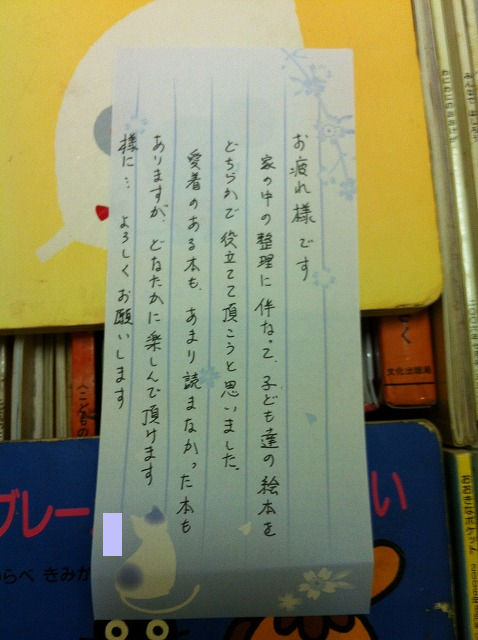 お疲れ様です
家の中の整理に伴なって、子ども達の絵本を
どちらかで役立てて頂こうと思いました。
愛着のある本も、あまり読まなかった本も
ありますが、どなたかに楽しんで頂けます
様に… よろしくお願いします
文化出版局
ブレー
い
らべ きみか